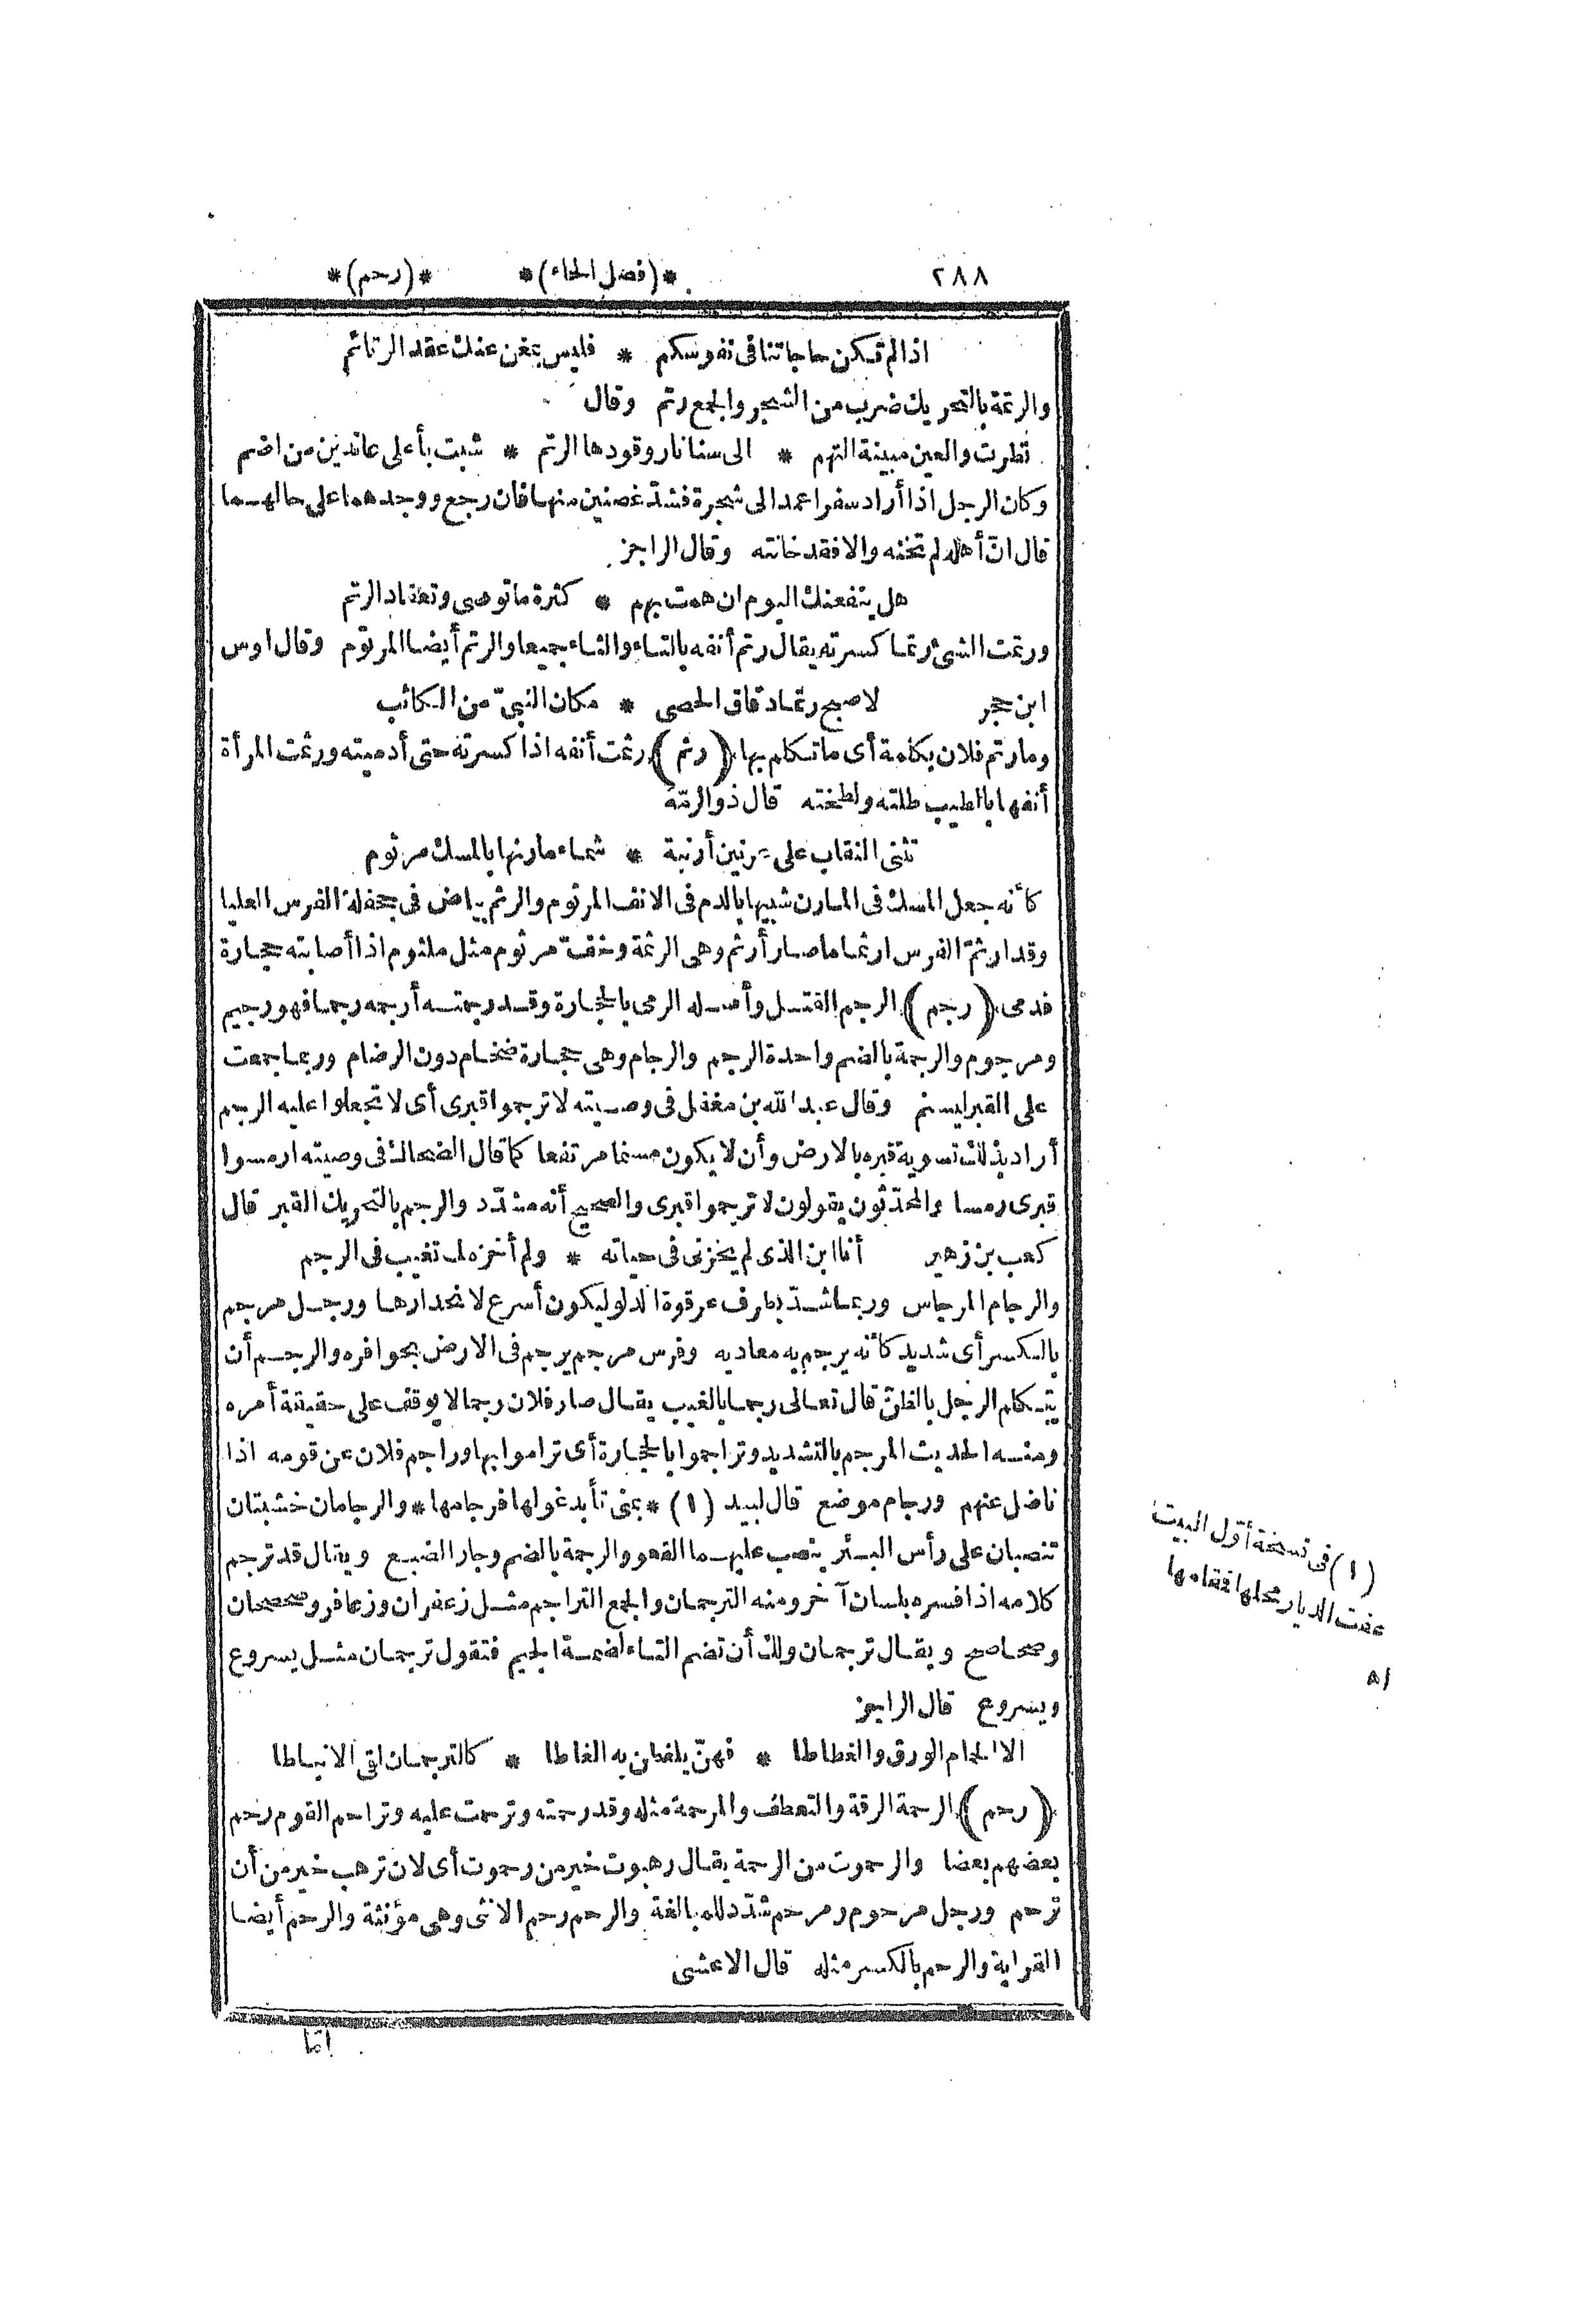 ٢٨٨ *(فصل الحاء)* *(رحم)*
اذا لم تكن حاجاتنا فى نفوسكم * فليس بمغن عنك عقد الرتائم
والرتمة بالتحريك ضرب من الشجر والجمع رتم وقال
نظرت والعين مبينة التهم * الى سنا نار وقودها الرتم * شبت بأعلى عاندين من اضم
وكان الرجل اذا أراد سفرا عمد الى شجرة فشدّ غصنين منها فان رجع ووجدهما على حالهـما
قال انّ أهله لم تخنه والا فقد خانته وقال الراجز
هل ينفعنك اليوم ان همت بهم * كثرة ما توصى وتعقاد الرتم
ورتمت الشئ رتما كسرته يقال رتم أنفه بالتاء والثاء جميعا والرتم أيضا المرتوم وقال اوس
ابن حجر لاصبح رتما دقاق الحصى * مكان النبىّ من الكاثب
وما رتم فلان بكلمة أى ما تكلم بها (رثم) رثمت أنفه اذا كسرته حتى أدميته ورثمت المرأة
أنفها بالطيب طلته ولطخته قال ذو الرمّة
تثنى النقاب على عرنين أرنبة * شماء مارنها بالمسك مرثوم
كأنه جعل المسك فى المارن شبيها بالدم فى الانف المرثوم والرثم بياض فى جحفلة الفرس العليا
وقد ارثمّ الفرس ارثماما صار أرثم وهى الرثمة وخفّ مرثوم مثل ملثوم اذا أصابته حجارة
فدمى (رجم) الرجم القتـل وأصـله الرمى بالحجارة وقـد رجمتـه أرجمه رجما فهو رجيم
ومرجوم والرجمة بالضم واحدة الرجم والرجام وهى حجارة ضخام دون الرضام وربما جمعت
على القبر ليسنم وقال عبد الله بن مغفل فى وصيته لا ترجموا قبرى أى لا تجعلوا عليه الرجم
أراد بذلك تسوية قبره بالارض وأن لا يكون مسنما مرتفعا كما قال الضحاك فى وصيته ارمسوا
قبرى رمسا والمحدّثون يقولون لا ترجموا قبرى والصحيح أنه مشدّد والرجم بالتحريك القبر قال
كعب بن زهير أنا ابن الذى لم يخزنى فى حياته * ولم أخزه لما تغيب فى الرجم
والرجام المرجاس وربما شدّ بطرف عرقوة الدلو ليكون أسرع لانحدارها ورجـل مرجم
بالكسر أى شديد كأنه يرجم به معاديه وفرس مرجم يرجم فى الارض بحوافره والرجـم أن
يتكلم الرجل بالظنّ قال تعالى رجما بالغيب يقال صار فلان رجما لا يوقف على حقيقة أمره
ومنـه الحديث المرجم بالتشديد وتراجموا بالحجارة أى تراموا بها وراجم فلان عن قومه اذا
ناضل عنهم ورجام موضع قال لبيد (١) * بمنى تأبد غولها فرجامها * والرجامان خشبتان
تنصبان على رأس البـئر ينصب عليهـما القعو والرجمة بالضم وجار الضبـع ويقال قد ترجم
كلامه اذا فسره بلسان آخر ومنه الترجمان والجمع التراجم مثـل زعفران وزعافر وصحصحان
وصحاصح ويقـال ترجمان ولك أن تضم التاء لضمـة الجيم فتقول ترجمان مثـل يسروع
ويسروع قال الراجز
الا الحمام الورق والغطاطا * فهنّ يلغطن به الغاطا * كالترجمان لقى الانباطا
(رحم) الرحمة الرقة والتعطف والمرحمة مثله وقد رحمته وترحمت عليه وتراحم القوم رحم
بعضهم بعضا والرحموت من الرحمة يقال رهبوت خير من رحموت أى لان ترهب خير من أن
ترحم ورجل مرحوم ومرحم شدّد للمبالغة والرحم رحم الانثى وهى مؤنثة والرحم أيضا
القرابة والرحم بالكسر مثله قال الاعشى
امّا
(١) فى نسخة أوّل البيت
عفت الديار محلها فمقامها
اه